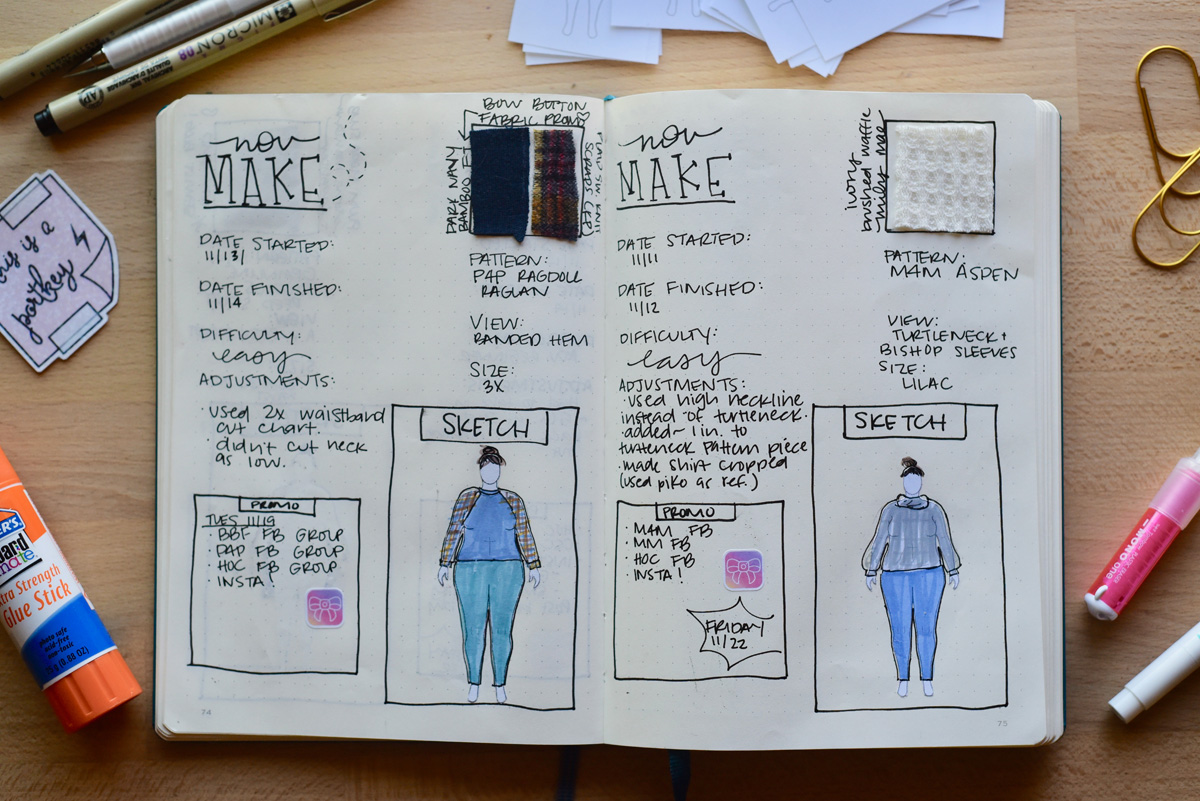 MICRON 08
this is a
portkey
now
MAKE
BOW BUTTON
FABRIC PROMO
DARK NAVY
BAMBOO
DATE STARTED:
11/13/
DATE FINISHED:
11/14
DIFFICULTY:
easy
ADJUSTMENTS:
· used 2x waistband
cut chart.
· didn't cut neck
as low.
PATTERN:
P4P RAGDOLL
RAGLAN
VIEW:
BANDED HEM
SIZE:
3X
SKETCH
PROMO
TUES 11/19
· BBF FB GROUP
· PAP FB GROUP
· HOC FB GROUP
· INSTA!
74
nov
MAKE
ivory
brushed waffle
DATE STARTED:
11/11
DATE FINISHED:
11/12
DIFFICULTY:
easy
ADJUSTMENTS:
· used high neckline
instead of turteneck.
· added ~ 1 in. to
turteneck pattern piece
· made shirt cropped
(used piko as ref.)
PATTERN:
M4M ASPEN
VIEW:
TURTLENECK +
BISHOP SLEEVES
SIZE:
LILAC
SKETCH
PROMO
· M4M FB
· MM FB
· HOC FB
· INSTA!
FRIDAY
11/22
75
Extra Strength
Glue Stick
photo safe
acid-free
non-toxic
(0.88 OZ)
MONO